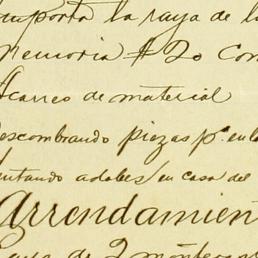 importa la raya de l
Memoria # 20 con
Acarreo de material
escombrando piezas p.ª enl
entando adobes en casa del
Arrendamien
de 2